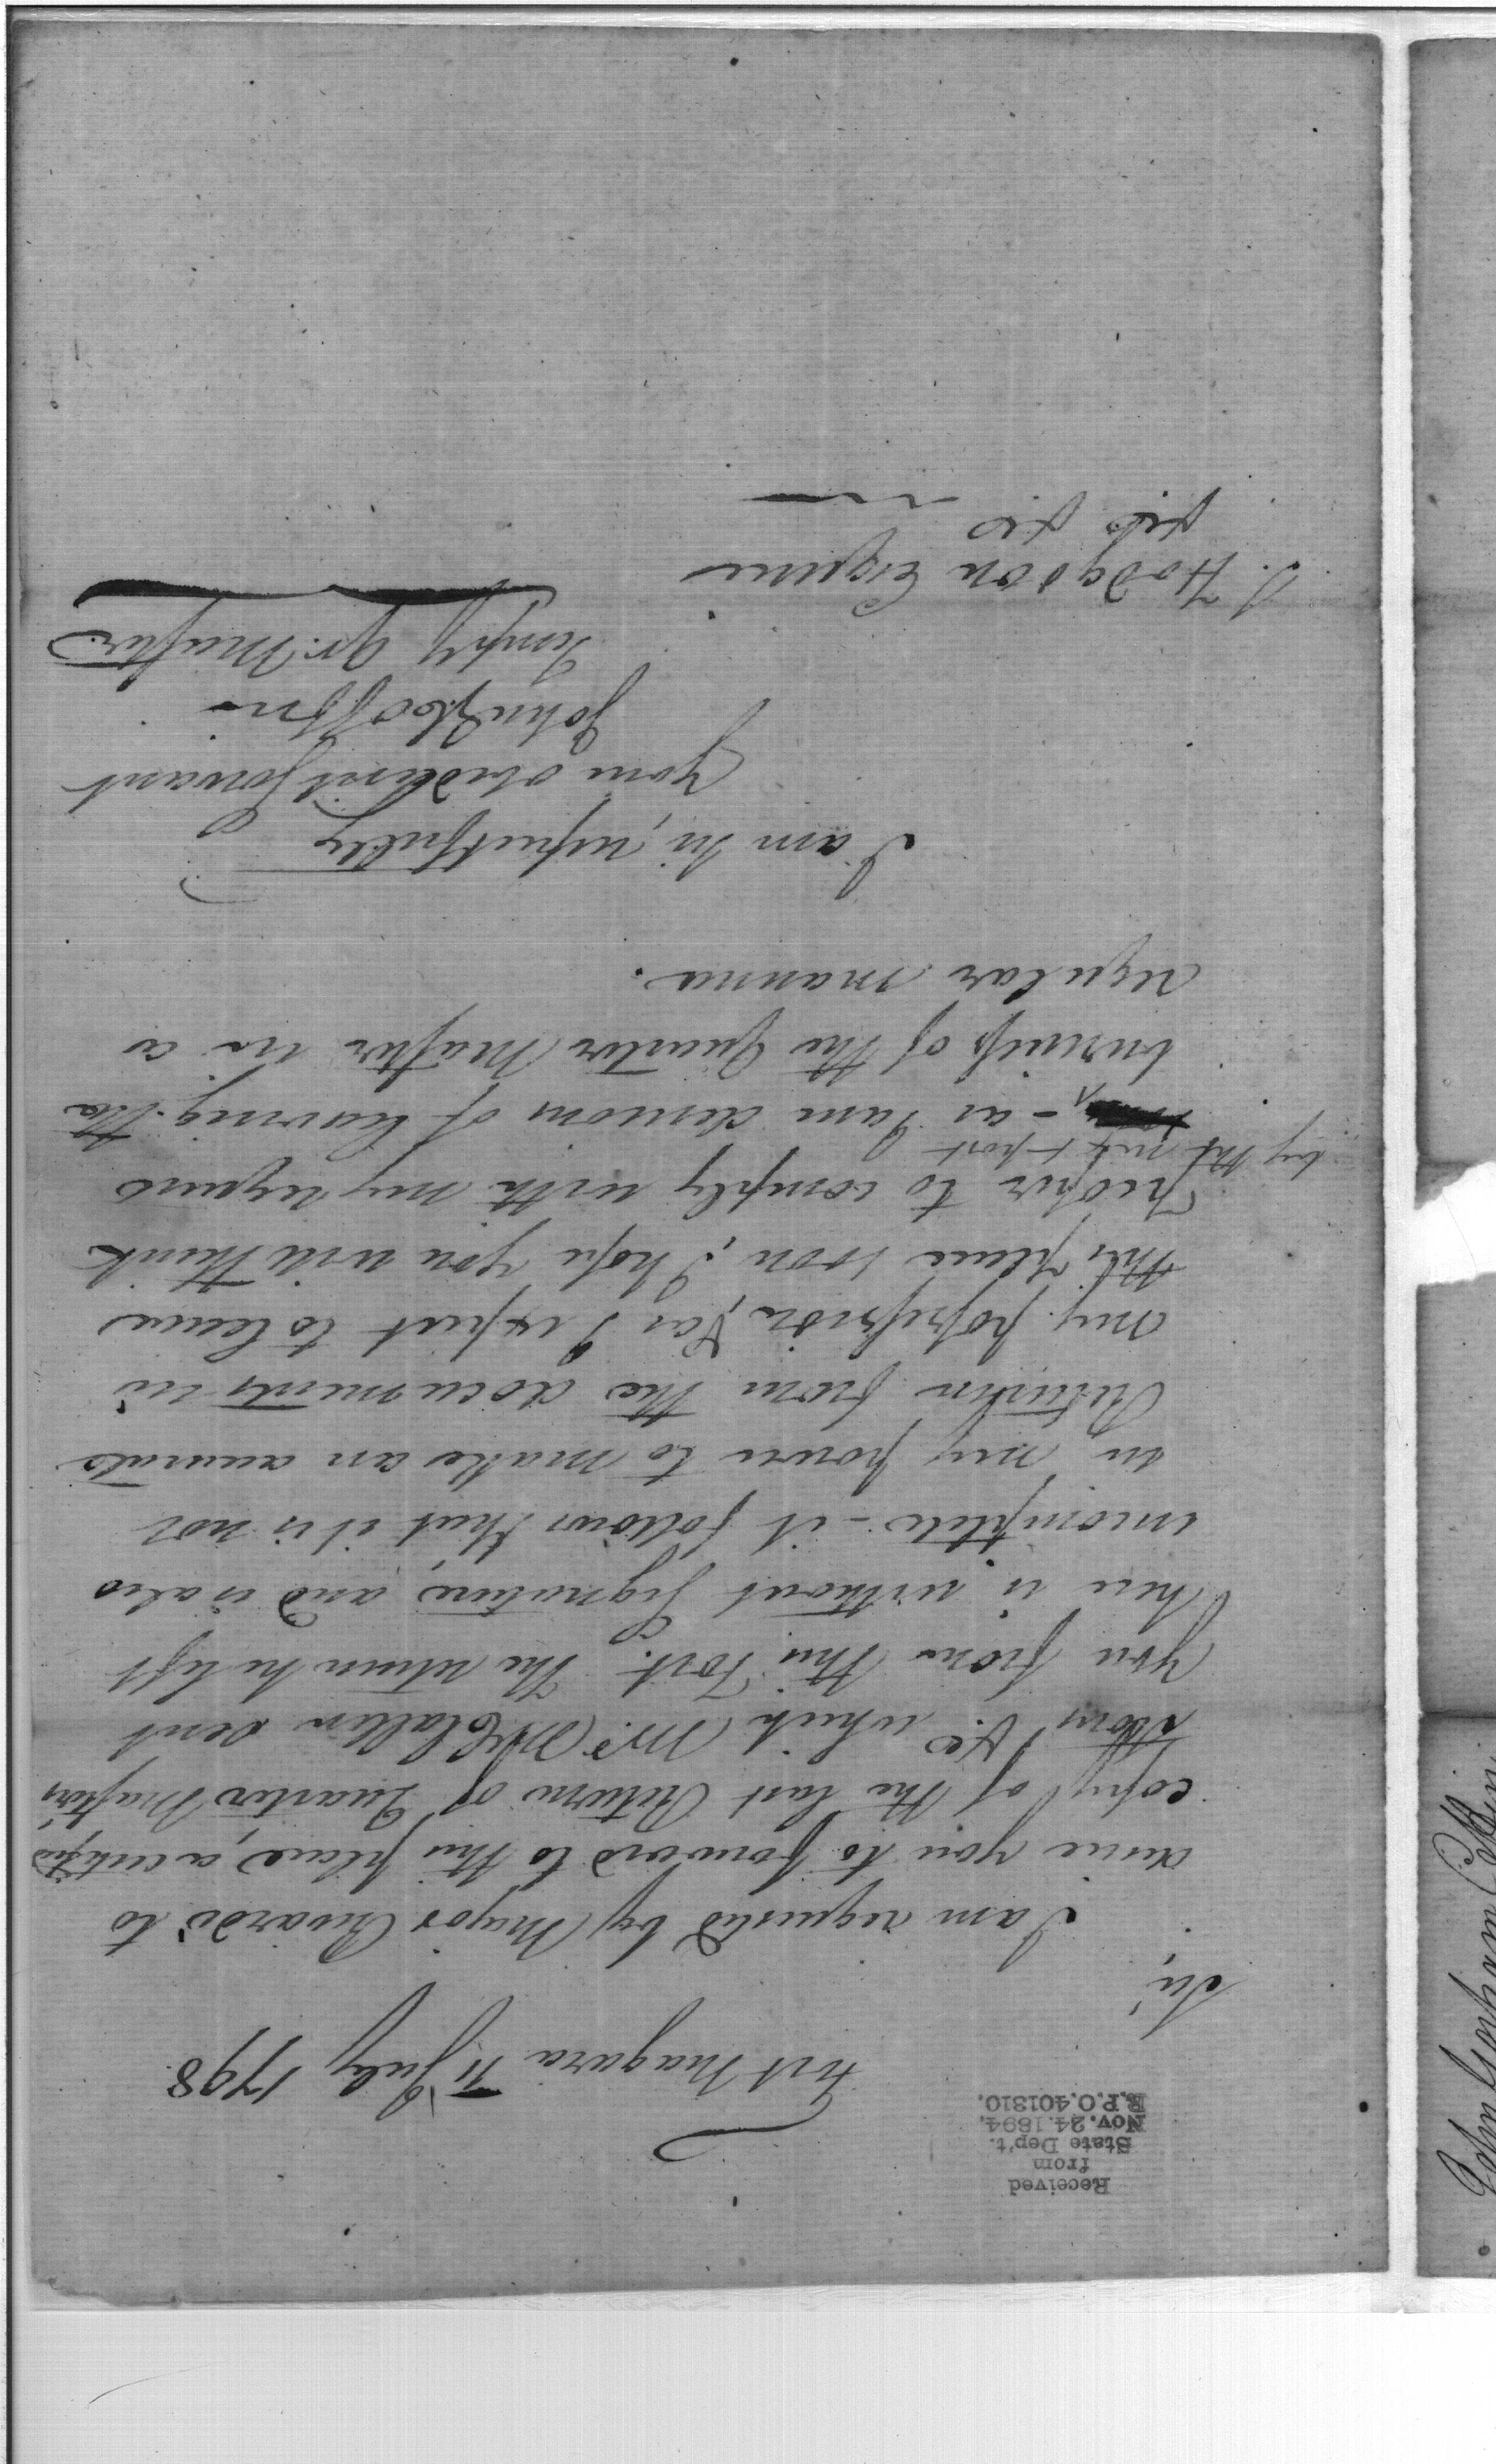 Received
from
State Dep't.
Nov. 24. 1894,
R.P.O. 401310.
Fort Niagara 11 July 1798
Sir,
I am requested by Major Rivardi to
desire you to forward to this place, a certified
copy of the last Return of Quarter Masters
Stores &c which Mr. McClallen sent
you from this Post. The return he left
here is without Signature, and is also
incomplete - it follows that it is not
in my power to make an accurate
Return from the documents in
my possession, & as I expect to leave
this place soon, I hope you will think
proper to comply with my request
by the next post
- as I am desirous of leaving the
business of the Quarter Master in a
regular manner.
I am Sir, respectfully
Your obedient Servant
John G Coffin
Tempy Qr. Master
J. Hodgdon Esquire
&c &c
John Gorham Coffin